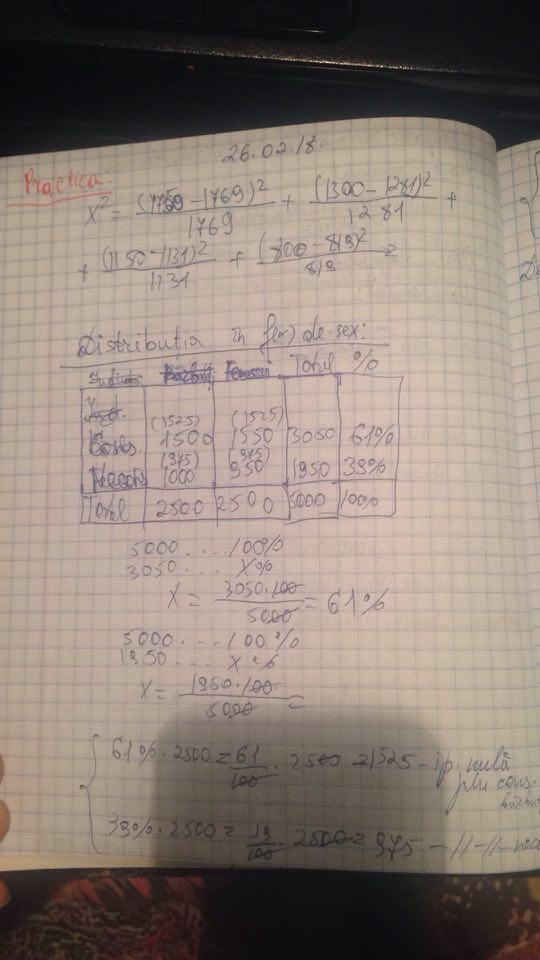 26.02.18.
Practica.
X² = (1750 - 1769)² / 1769 + (1300 - 1281)² / 1281 +
+ (1150 - 1131)² / 1131 + (800 - 819)² / 819 =
Distributia în f(x) de sex:
Indicator Bărbați Femei Total %
(1525) (1525)
Cons. 1500 1550 3050 61%
(975) (975)
Necons 1000 950 1950 39%
Total 2500 2500 5000 100%
5000 .... 100%
3050 ... X%
X = 3050·100 / 5000 = 61%
5000 ... 100%
1950 ... X%
X = 1950·100 / 5000 =
61%·2500 = 61/100 · 2500 = 1525 - ip. nulă
ptu cons.
39%·2500 = 39/100 · 2500 = 975 - //-//- neco